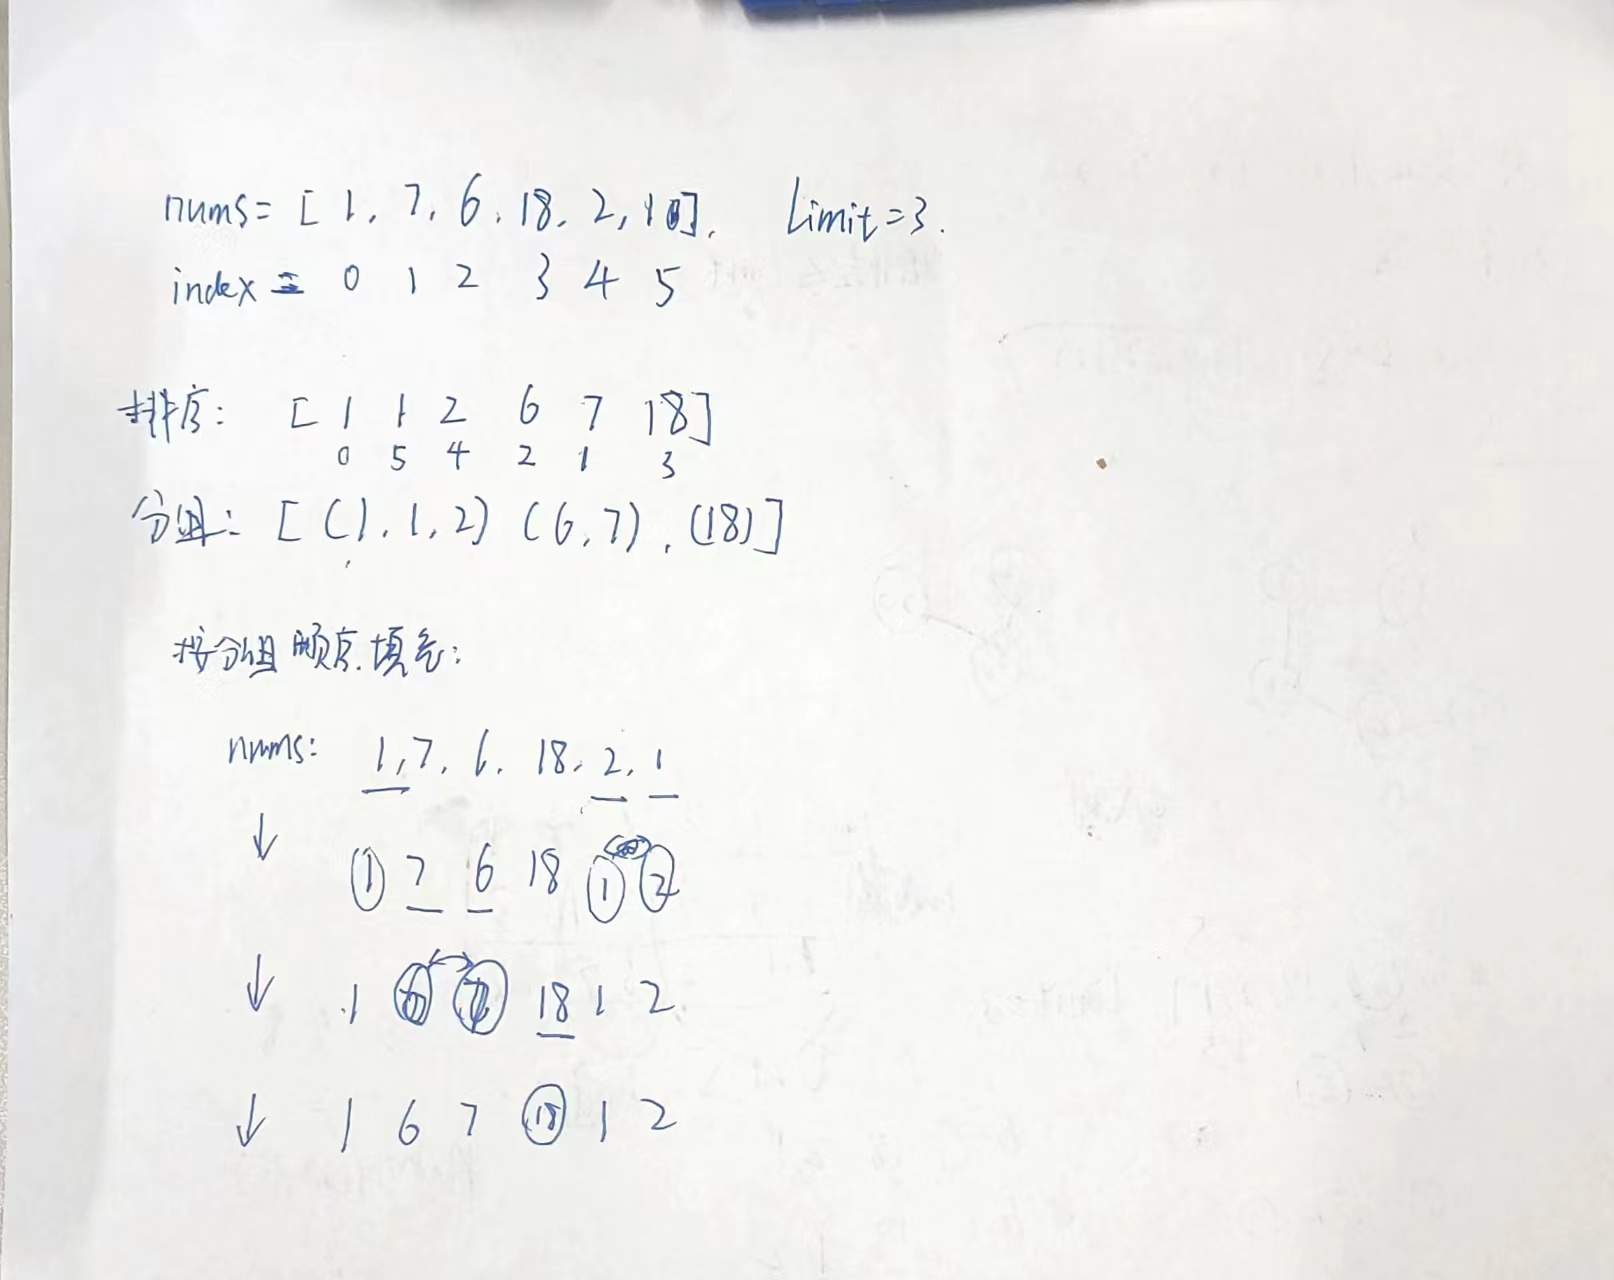 nums = [ 1, 7, 6, 18, 2, 1 ], limit=3.
index = 0 1 2 3 4 5
排序: [ 1 1 2 6 7 18 ]
0 5 4 2 1 3
分组: [ (1, 1, 2) (6, 7), (18) ]
按分组顺序填充:
nums: 1, 7, 6, 18, 2, 1
↓ 1 7 6 18 1 2
↓ 1 6 7 18 1 2
↓ 1 6 7 18 1 2